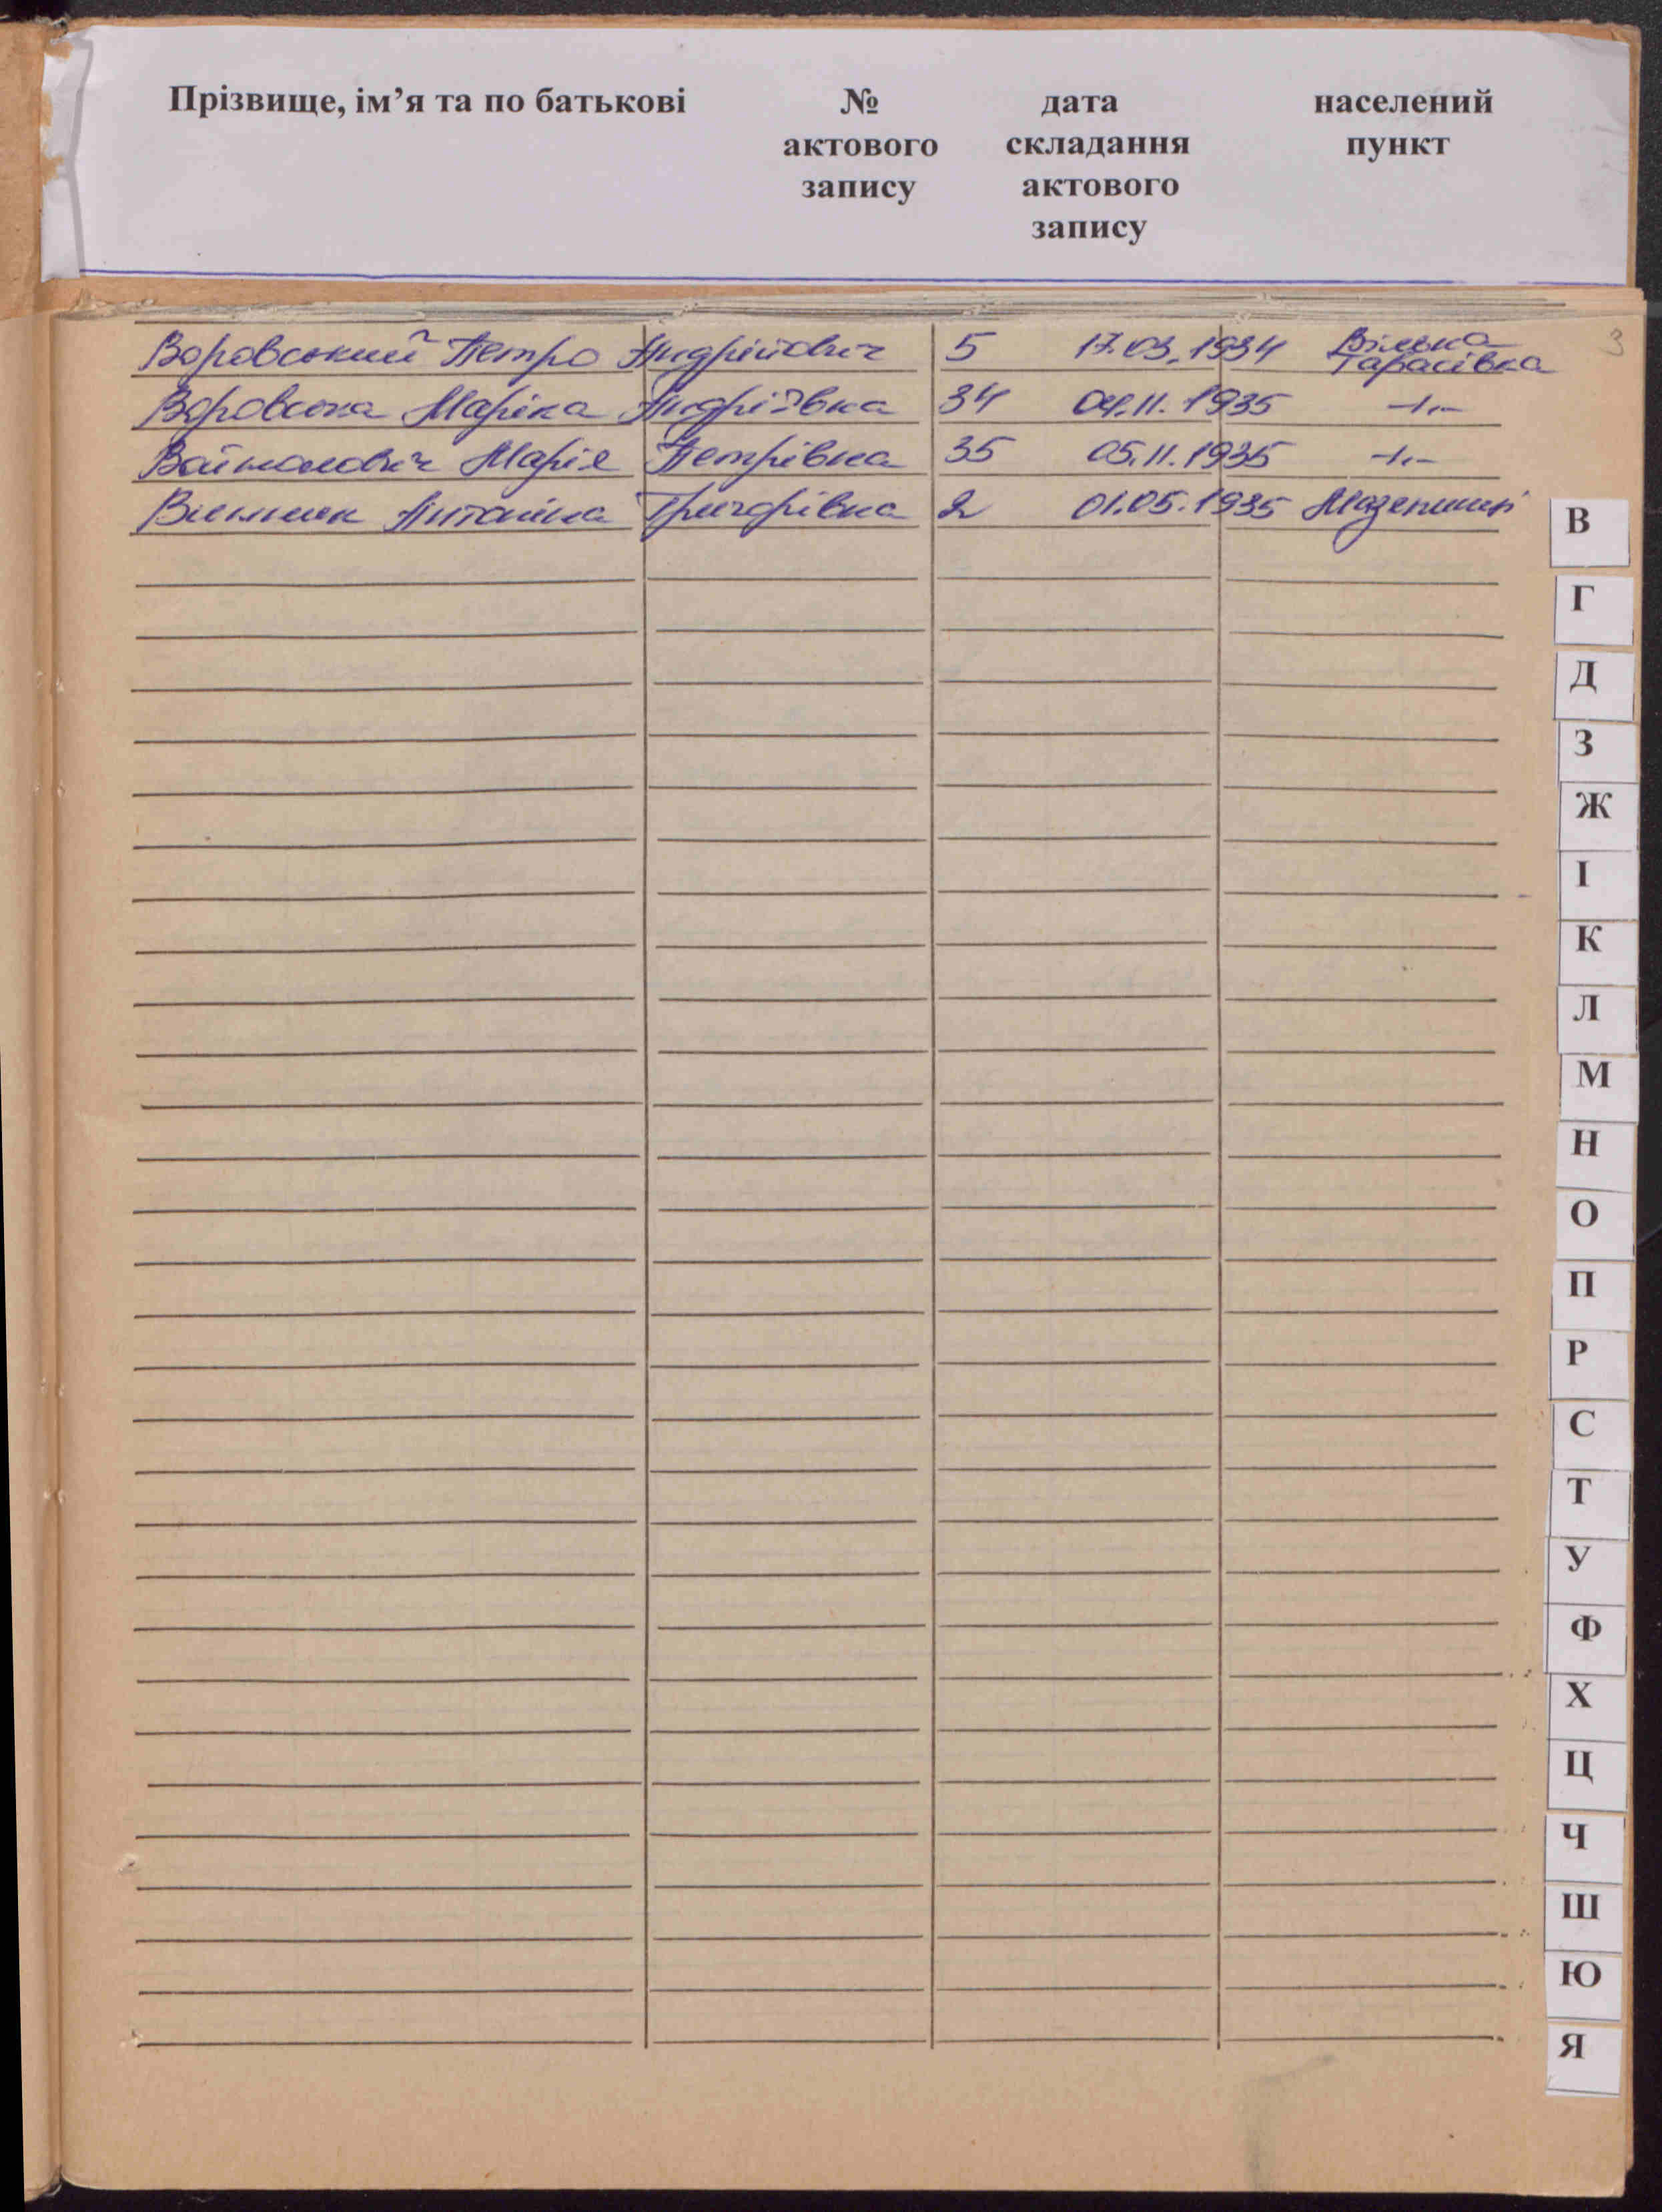 Прізвище, ім’я та по батькові № дата населений
актового складання пункт
запису актового
запису
3
Воровський Петро Андрійович 5 17.03.1934 Вільна Тарасівка
Воровська Маріка Андріївна 34 04.11.1935 -//-
Войталович Марія Петрівна 35 05.11.1935 -//-
Антоніна Григорівна 2 01.05.1935 Мазепинці
В
Г
Д
З
Ж
І
К
Л
М
Н
О
П
Р
С
Т
У
Ф
Х
Ц
Ч
Ш
Ю
Я